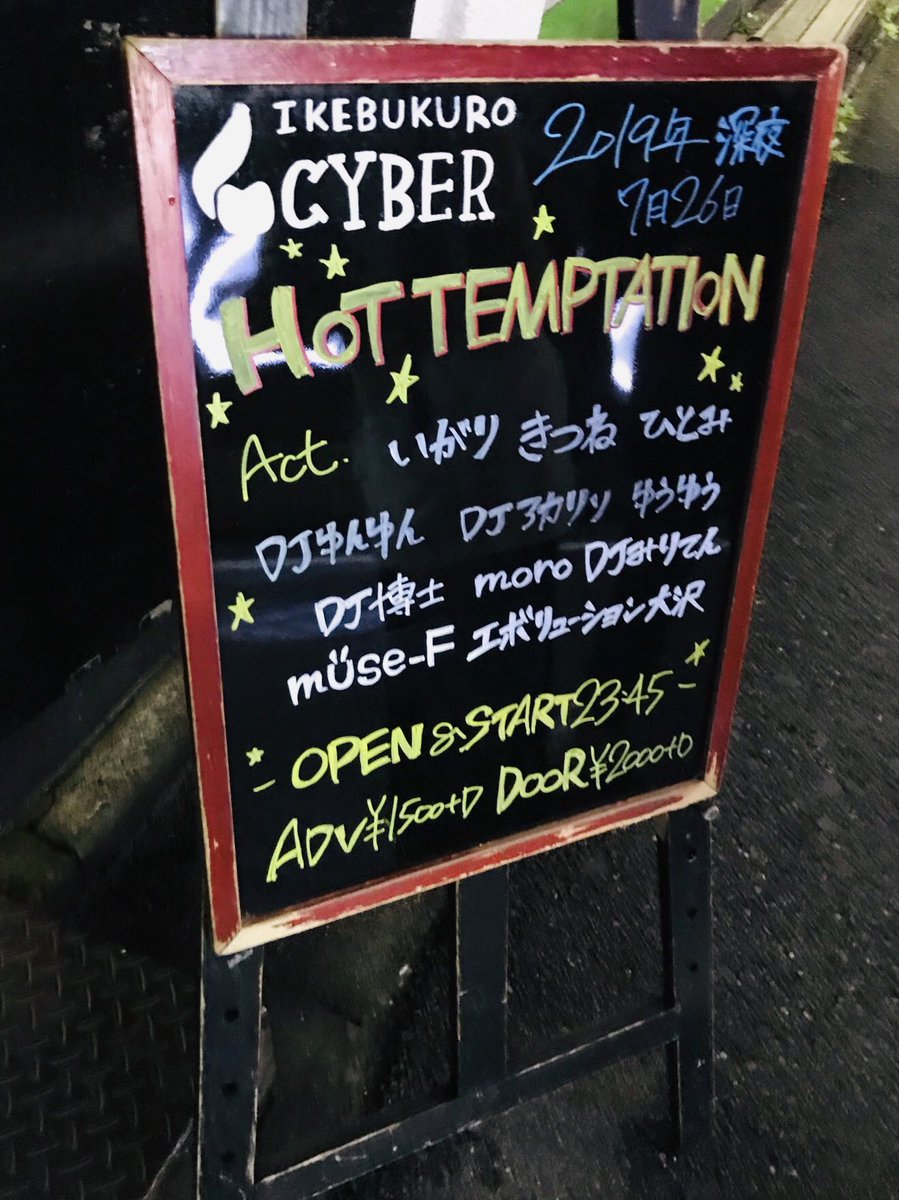 IKEBUKURO
CYBER
2019年 深夜
7月26日
HOT TEMPTATION
Act. いがり きつね ひとみ
DJゆんゆん DJアカリン ゆうゆう
DJ博士 moro DJみりてん
müse-F エボリューション大沢
- OPEN & START 23:45 -
ADV ¥1500+D DOOR ¥2000+D